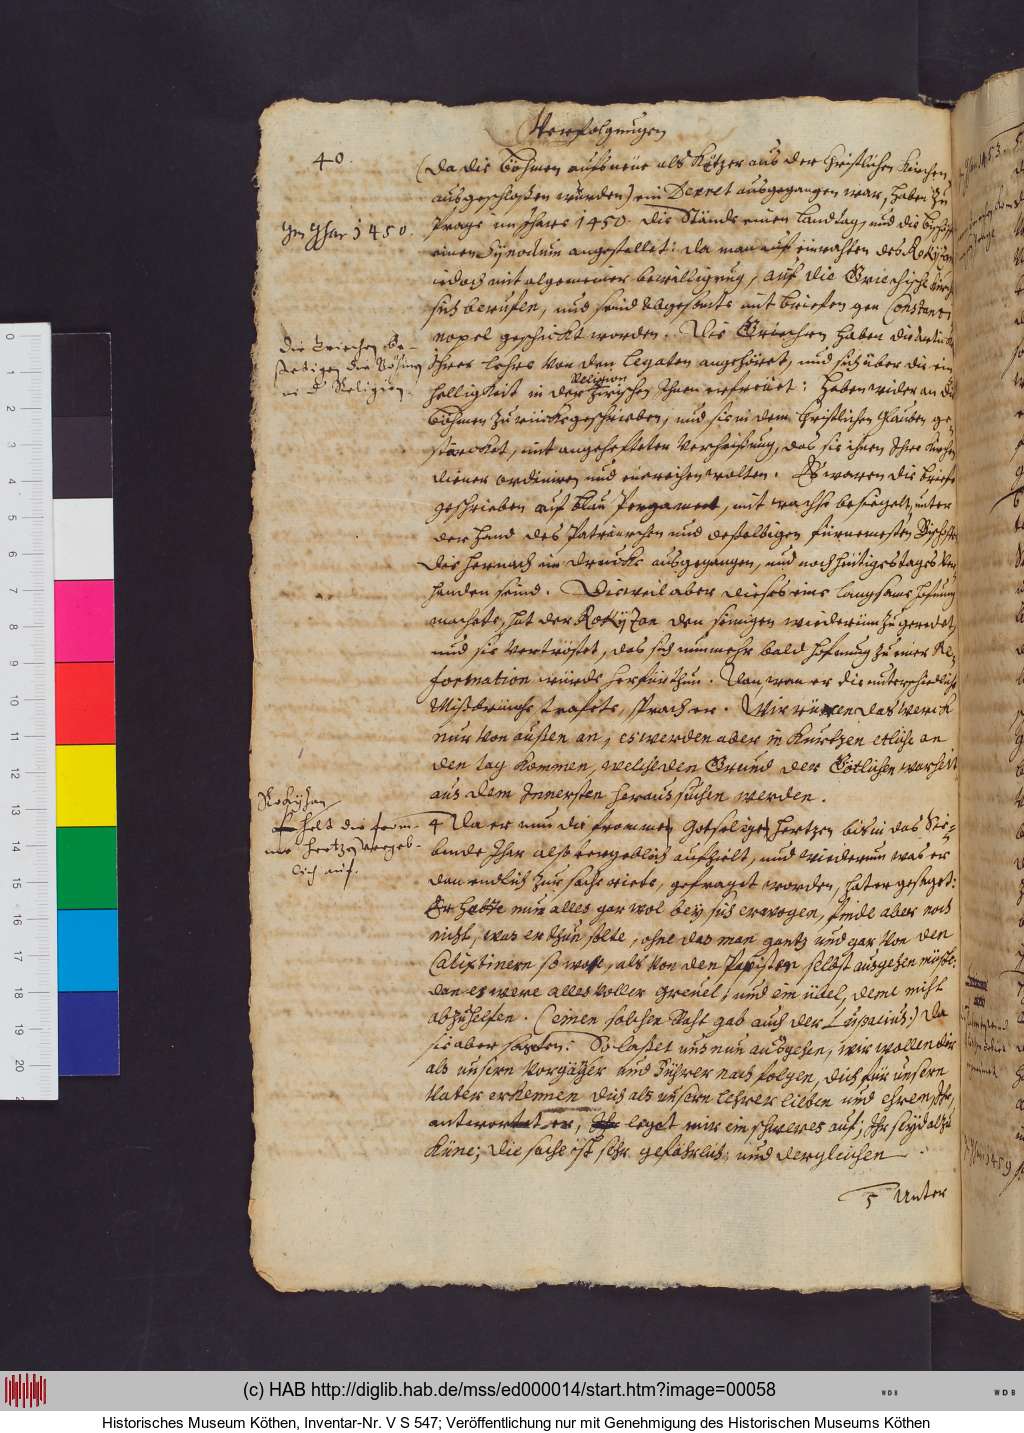 Verfolgungen
40.
(da die Böhmen aufs neüe als Kätzer aus der Christlichen Kirchen
ausgeschloßen wurden) ein Decret ausgegangen war, haben zu
Im Jhar 1450.
Prage im Jhare 1450. die Stände einen Landtag, und die
einen Synodum angestellet: da man auf einrahten des Rokyzan
iedoch mit algemeiner bewilligung, auf die Griechische Kirch
sich beruffen, und seind Abgesante mit briefen gen Constanti
nopel geschickt worden. Die Griechen haben die Artickel
Die Griechen be-
stetigen die Böhmen
in d Religion.
Ihrer Lehre von den Legaten angehöret, und sich über die ein
Religion
helligkeit in der Ihnen erfreuet: haben wider an die
Böhmen zurücke geschrieben, und sie in dem Christlichen Glauben ge,
stercket, mit angehefteter Verheißung, das sie ihnen Ihre Kirchen
diener ordiniren und einreichen wolten. Es waren die briefe
geschrieben auf blau Pergament, mit wachse besiegelt, unter
der Hand des Patriarchen und deßelbigen fürnemesten Bischoffe
die hernach im drucke ausgegangen, und noch heütiges tages vor
handen seind. Dieweil aber dieses eine langsame hofnung
machete, hat der Rokyzan den seinigen wiederümm zugeredet,
und sie vertröstet, das sich nunmehr bald hofnung zu einer Re,
formation würde herfür thun. Dan, wan er die unterschiedliche
Misbräuche strafete, sprach er. Wir rüren das werck
nur von außen an, es werden aber in Kurtzen etliche an
den tag kommen, welche den Grund der Götlichen warheit
aus dem Innersten heraus suchen werden.
Rokyzan
helt die from-
me hertzen vergeb-
lich auf.
4 Da er nun die frommen Gotseligen hertzen bis in das Sie-
bende Jhar also vergeblich aufhielt, und wiederum was er
dan endlich zur sache riete, gefraget worden, hat er gesaget:
Er hette nun alles gar wol bey sich erwogen, finde aber noch
nicht, was er thun solte, ohne das man gantz und gar von den
Calixtinern so wohl, als von den Papisten selbst ausgehen müste:
dan es were alles voller greuel, und ein übel, deme nicht
abzuhelfen. (einen solchen Raht gab auch der Lupacius.) Da
sie aber sagten: So laßet uns nun ausgehen, wir wollen dir
als unsern Vorgänger und Führer nach folgen, dich für unsern
Vater erkennen dich als unsern Lehrer lieben und ehren, Ihr,
antwortet er, leget mir ein schweres auf; Ihr seyd alzu
Küne; die sache ist sehr gefährlich; und dergleichen
5 Unter
(c) HAB http://diglib.hab.de/mss/ed000014/start.htm?image=00058
Historisches Museum Köthen, Inventar-Nr. V S 547; Veröffentlichung nur mit Genehmigung des Historischen Museums Köthen